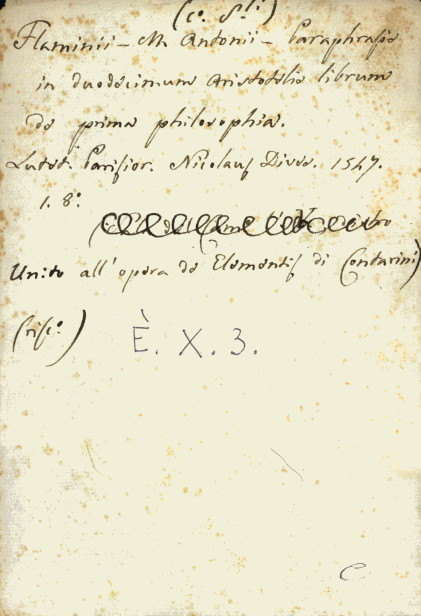 (c. 8.ti)
Flaminii - M. Antonii - Paraphrasis
in duodecimum Aristotelis librum
de prima philosophia.
Lutet. Parisior. Nicolaus Dives. 1547.
1. 8°.
Unito all'opera de Elementis di Contarini)
(risc.°)
È. X. 3.
C